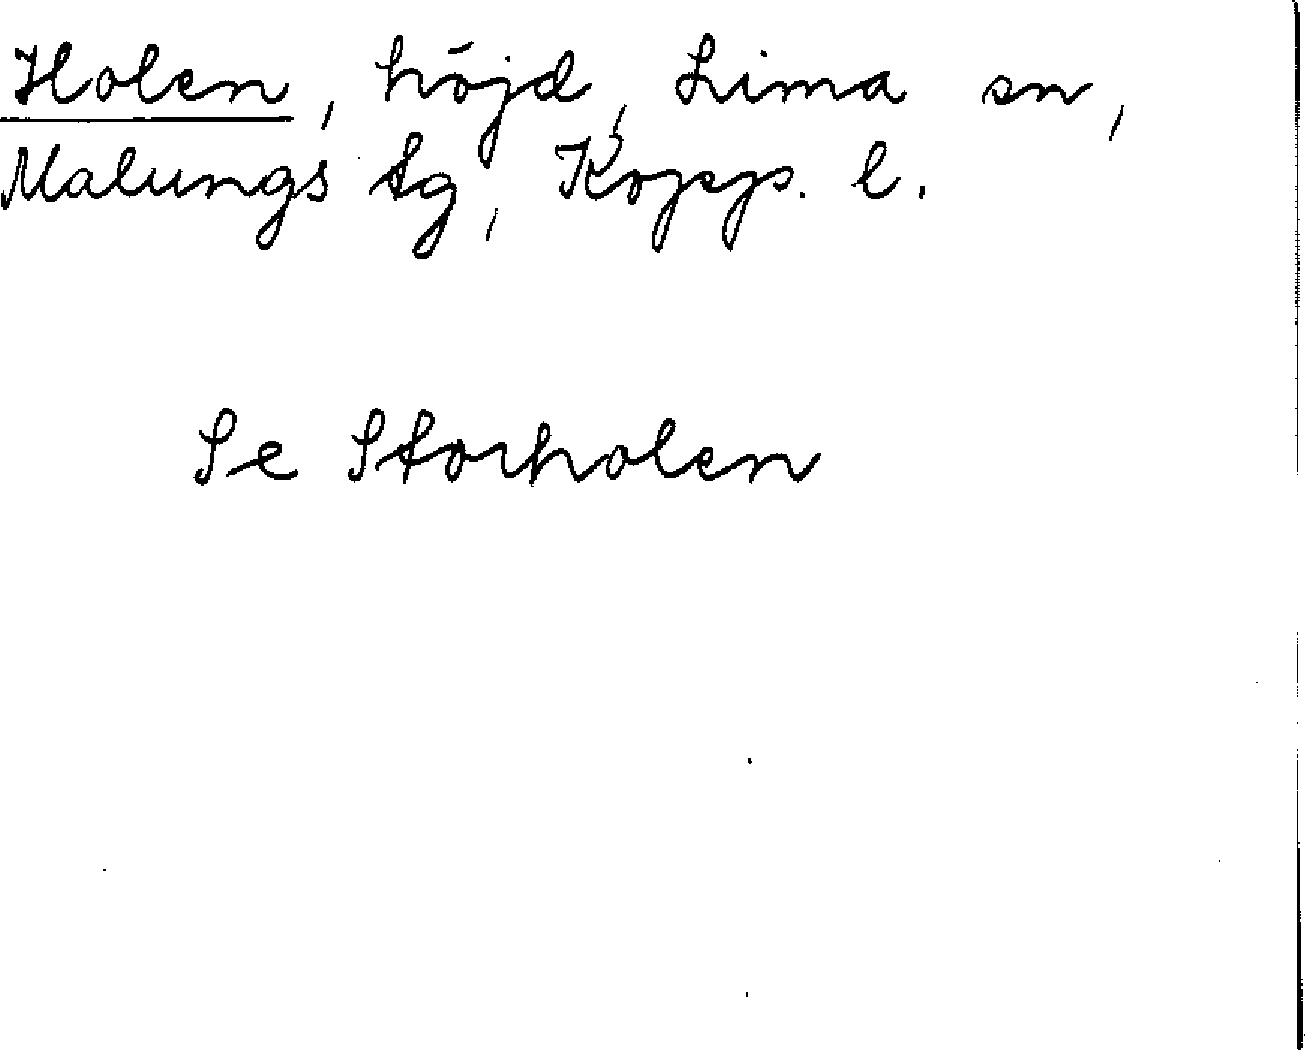 Holen, höjd, Lima sn,
Malungs tg, Kopp. l.
Se Storholen